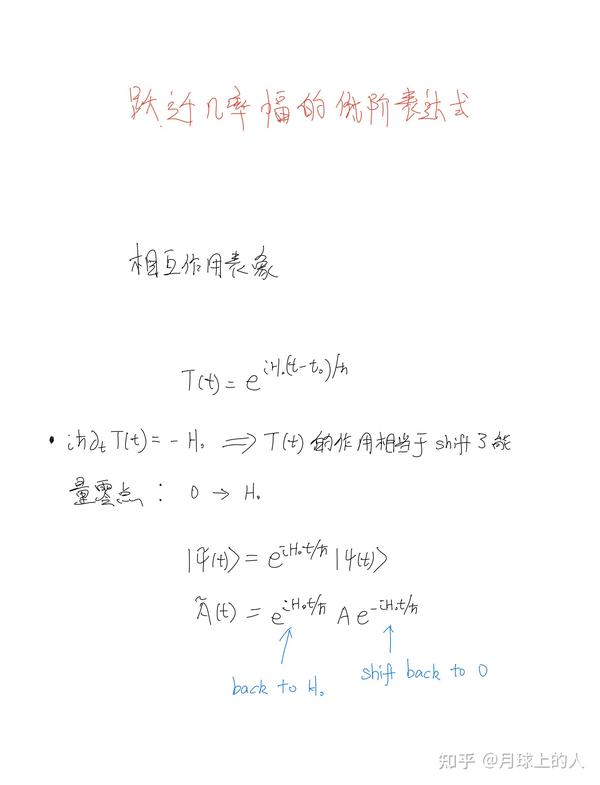 跃迁几率幅的低阶表达式
相互作用表象
T(t) = e^{iH₀(t-t₀)/ħ}
• iħ∂ₜT(t) = -H₀ ⟹ T(t) 的作用相当于 shift 了能
量零点： 0 → H₀
|ψ̃(t)⟩ = e^{iH₀t/ħ} |ψ(t)⟩
Ã(t) = e^{iH₀t/ħ} A e^{-iH₀t/ħ}
back to H₀
shift back to 0
知乎 @月球上的人